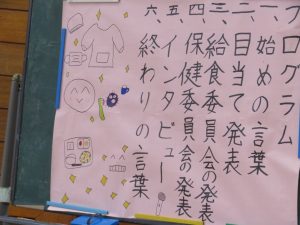 プログラム
一、始めの言葉
二、目当て発表
三、給食委員会の発表
四、保健委員会の発表
五、インタビュー
六、終わりの言葉